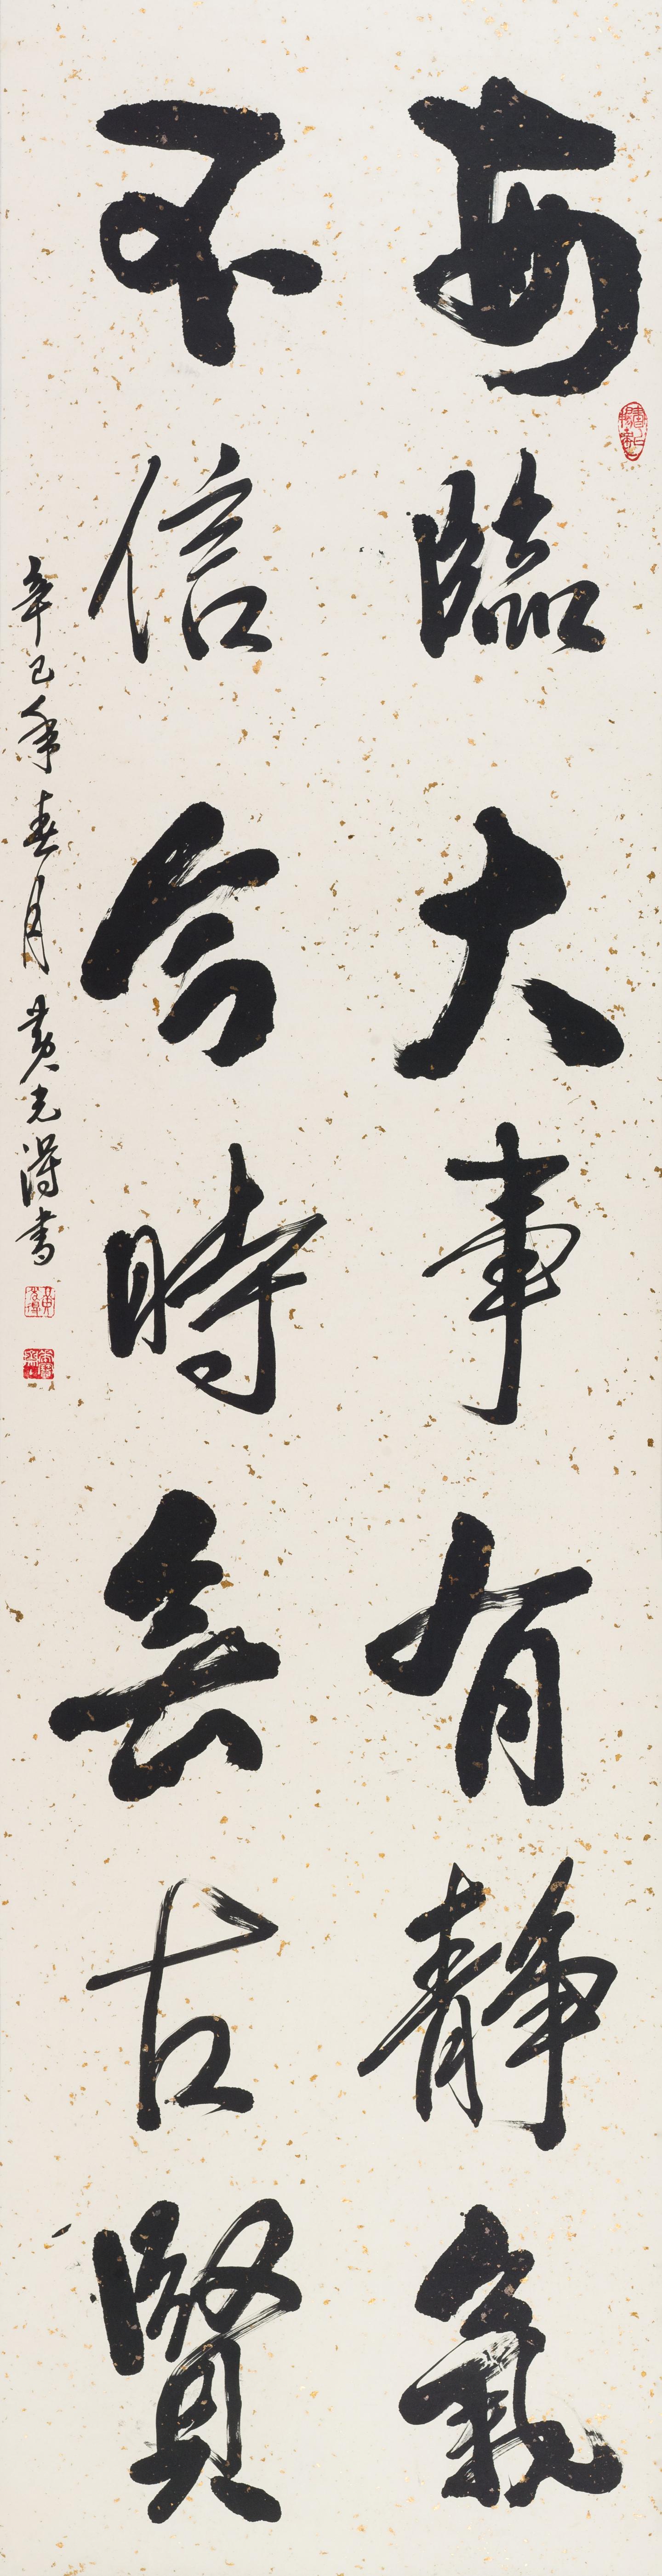 每臨大事有靜氣
不信今時無古賢
辛巳年春月黃光得書